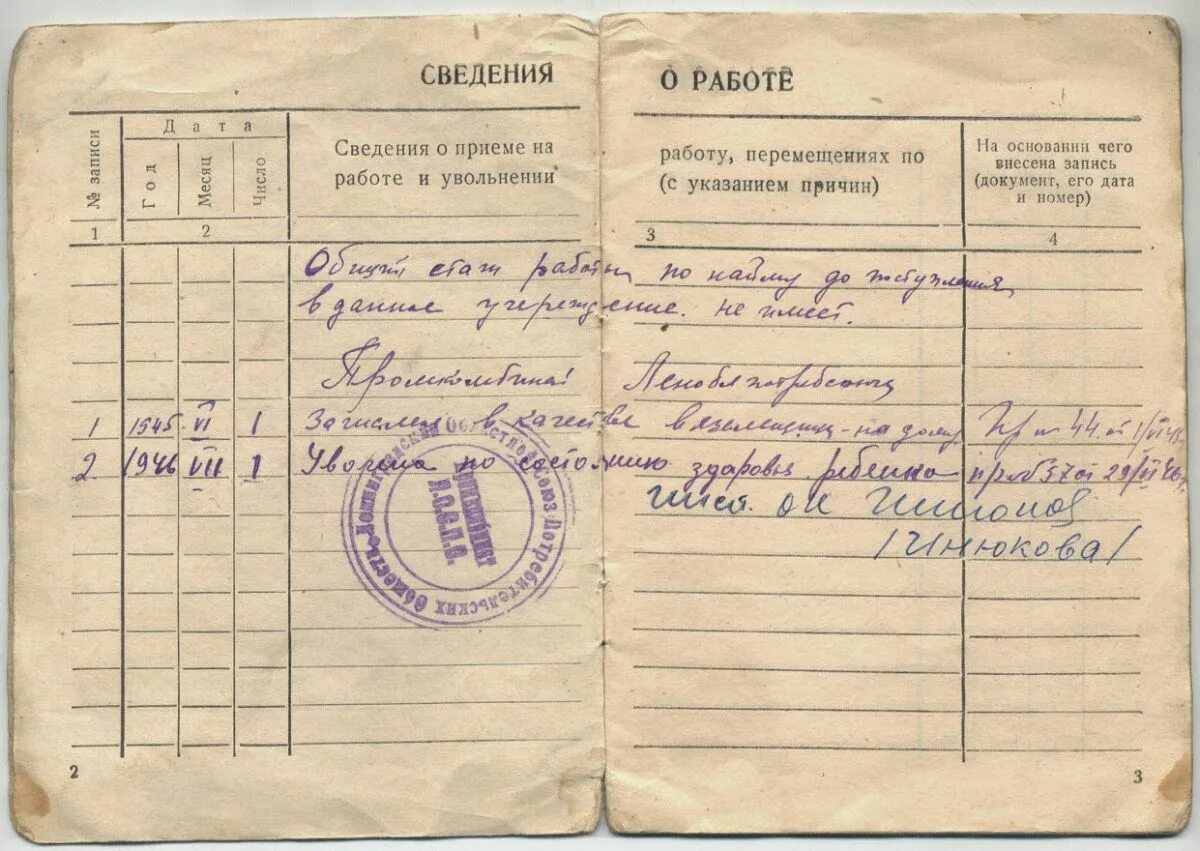 СВЕДЕНИЯ О РАБОТЕ
№ записи
Дата
Год
Месяц
Число
Сведения о приеме на работу, перемещениях по
работе и увольнении (с указанием причин)
На основании чего
внесена запись
(документ, его дата
и номер)
1 2 3 4
Общий стаж работы по найму до поступления
в данное учреждение не имеет.
Промкомбинат Леноблпотребсоюза
1 1945 VI 1 Зачислена в качестве вязальщицы на дому Пр № 44 от 1/VI 45
2 1946 VII 1 Уволена по состоянию здоровья ребенка пр № 57 от 29/VI 46 г.
ОК
/Инюкова/
Ленинградский Областной Союз Потребительских Обществ
Промкомбинат
Л.О.С.П.О.
2
3